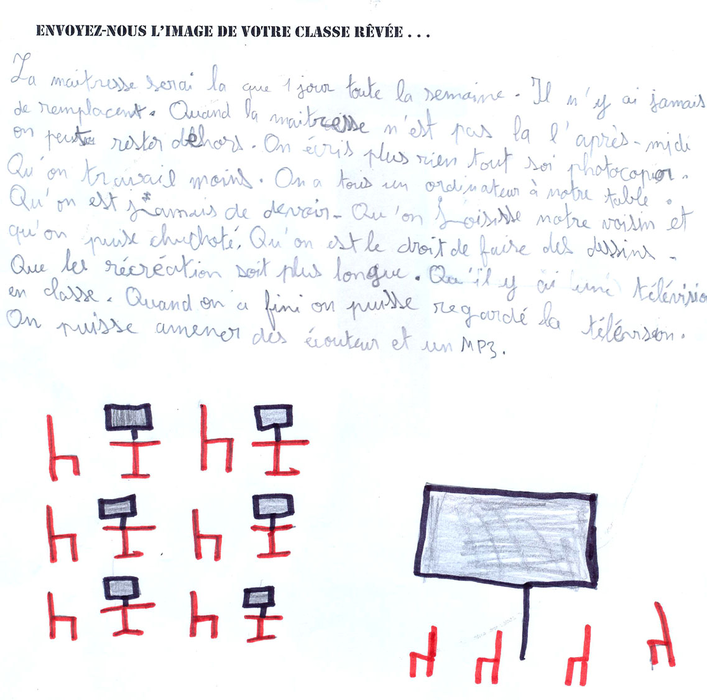 ENVOYEZ-NOUS L'IMAGE DE VOTRE CLASSE RÊVÉE . . .
La maitresse serai la que 1 jour toute la semaine. Il n'y ai jamais
de remplacent. Quand la maitresse n'est pas la l'après-midi
on peut rester dehors. On écris plus rien tout soi photocopier.
Qu'on travail moins. On a tous un ordinateur à notre table.
Qu'on est jamais de devoir. Qu'on Loisisse notre voisin et
qu'on puise chuchoté. Qu'on est le droit de faire des dessins.
Que les récréation soit plus longue. Qu'il y ai une télévision
en classe. Quand on a fini on puisse regardé la télévision.
On puisse amener des écouteur et un MP3.